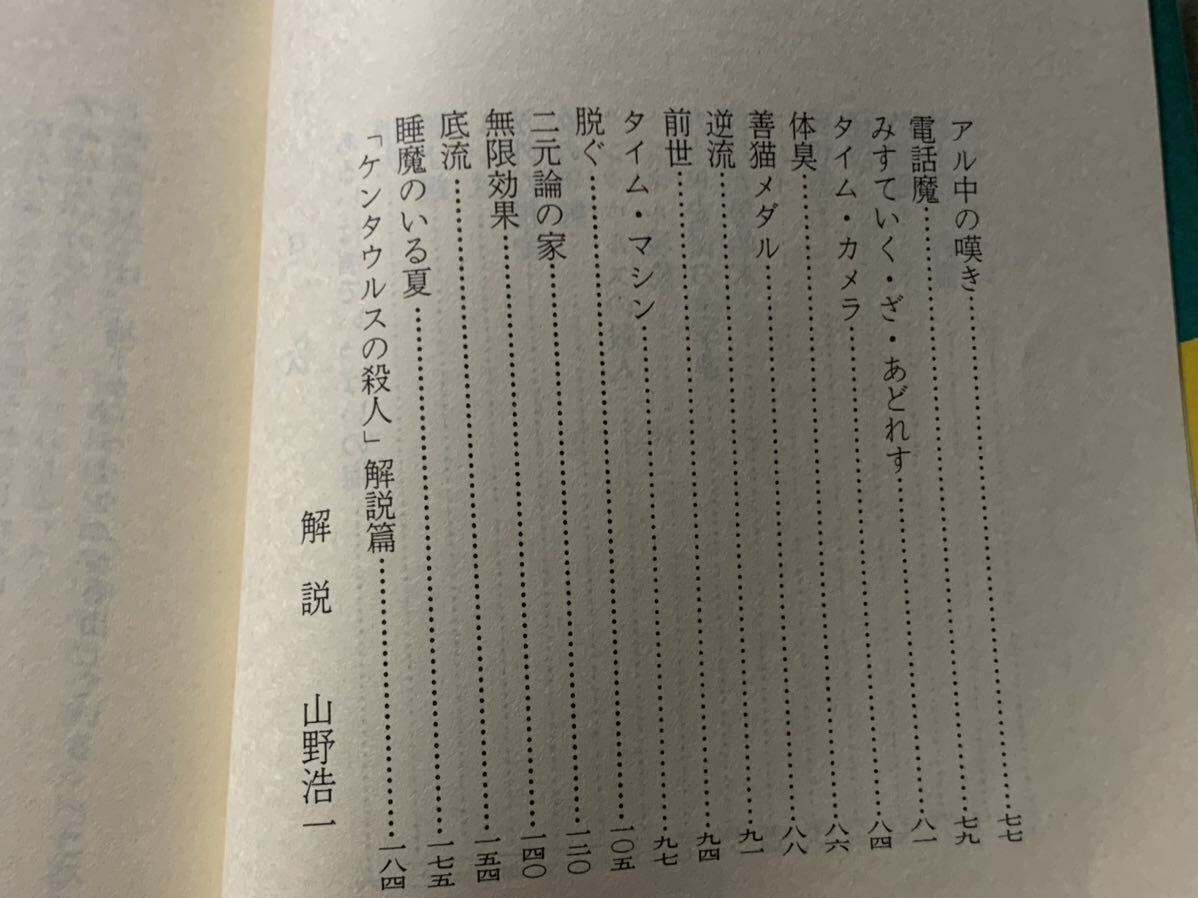 アル中の嘆き……七七
電話魔……七九
みすていく・ざ・あどれす……八一
タイム・カメラ……八四
体臭……八六
善猫メダル……八八
逆流……九一
前世……九四
タイム・マシン……九七
脱ぐ……一〇五
二元論の家……一二〇
無限効果……一四〇
底流……一五四
睡魔のいる夏……一七五
「ケンタウルスの殺人」解説篇……一八四
解説 山野浩一